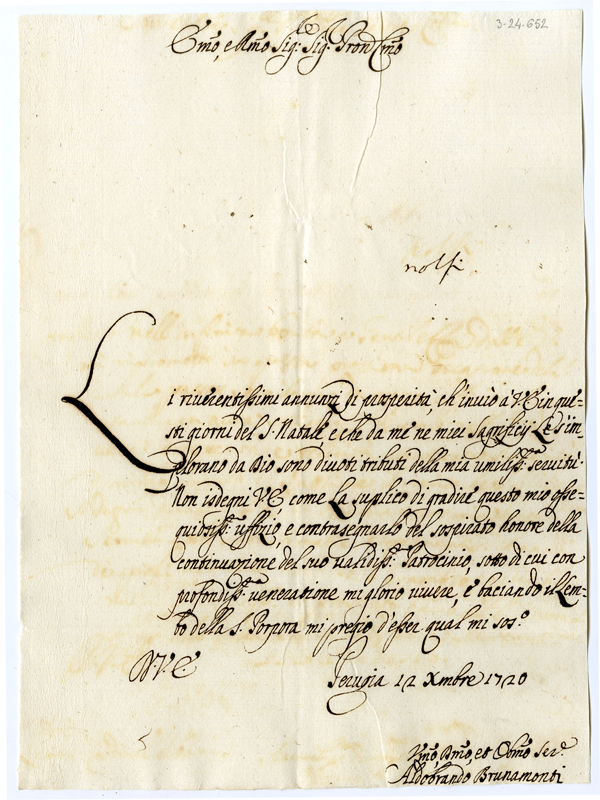 3-24-652
Em͞o, e Rm͞o Sig: Sig: Pron Cm͞o
nolfi
Li riuerentissimi annunzi di prosperità, ch'inuio à V E in que=
sti giorni del S. Natale e che da me ne miei Sagrificij Le s'im-
plorano da Dio sono diuoti tributi della mia umiliss:ª seruitù.
Non isdegni V E, come La suplico di gradire questo mio osse=
quiosiss:º uffizio, e contrasegnarlo del sospirato honore della
continuazione del suo ualidiss:º Patrocinio, sotto di cui con
profondiss:ª venerazione mi glorio viuere, e baciando il Lem-
bo della S. Porpora mi pregio d'esser qual mi sos.º
D. V. E.
Perugia 12 Xmbre 1720
Vm͞o, Dm͞o, et Obm͞o Ser.e
Aldobrando Brunamonti